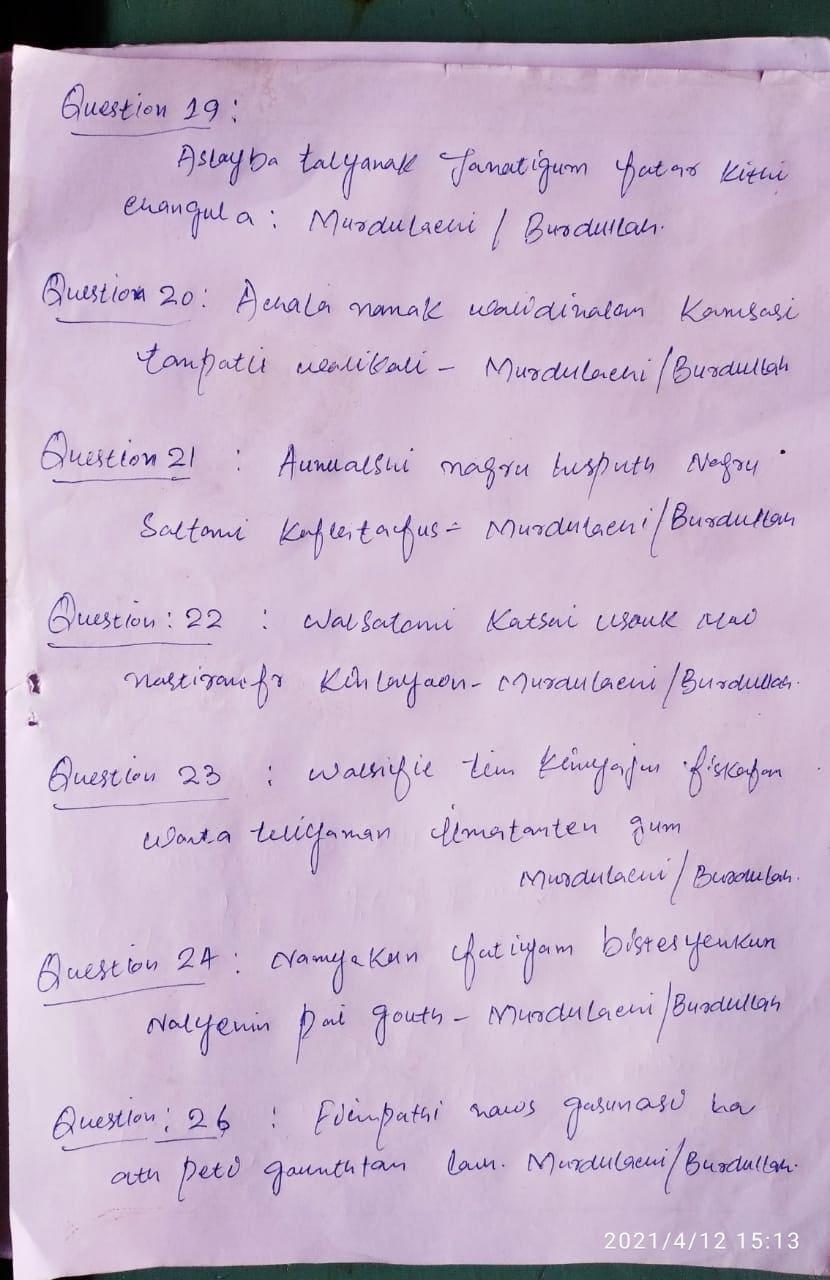 Question 19:
Aslayba talyanak Janatigum fatar Kithi
changula: Murdulachi / Burdullah.
Question 20: Achala namak walidinalam Kamsasi
tanpatli walikali - Murdulachi/Burdullah
Question 21 : Aunualshi nagru tusputh Nagru
Saltami Kafletaifus = Murdulachi/Burdullah
Question: 22 : Walsatami Katsai usouk
Kinlayaon - Murdulachi/Burdullah.
Question 23 : tim fiskafan
waxta gum
Murdulachi/Burdullah.
Question 24: Namyakun fatiyam bistesyenkun
Nalyenin pai gouth - Murdulachi/Burdullah
Question: 26 : naws gasunasi ha
ath peti gaunthtan lam. Murdulachi/Burdullah.
2021/4/12 15:13